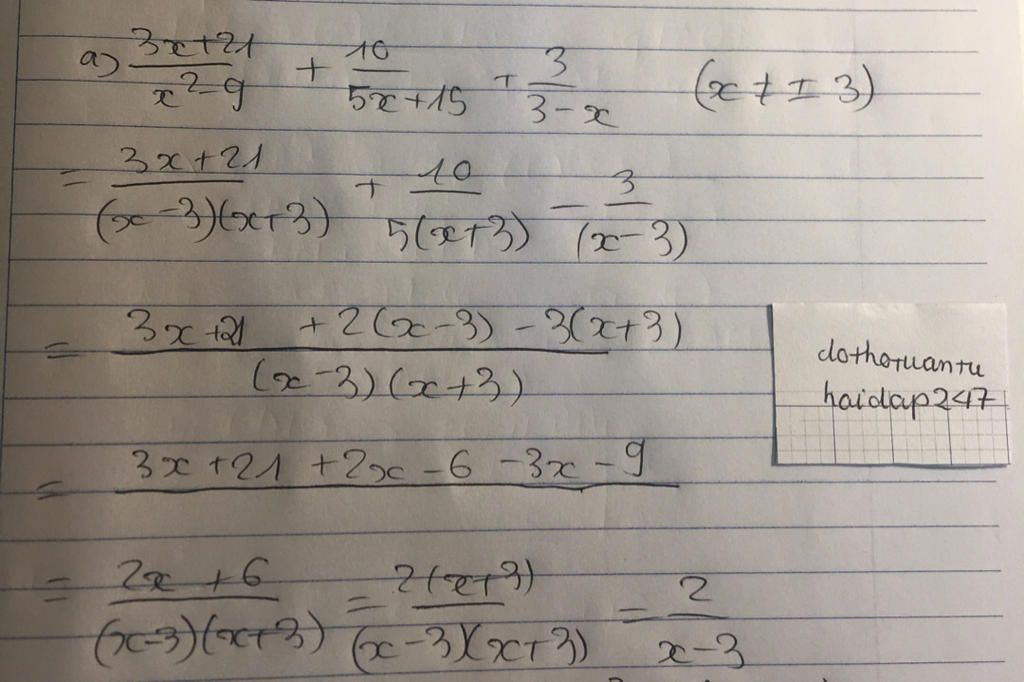 a) (3x+21)/(x²-9) + 10/(5x+15) + 3/(3-x) (x ≠ ± 3)
= (3x+21)/((x-3)(x+3)) + 10/(5(x+3)) - 3/((x-3))
= (3x+21 + 2(x-3) - 3(x+3))/((x-3)(x+3))
dothotuantu
haidap247
= 3x+21+2x-6-3x-9
= (2x+6)/((x-3)(x+3)) = (2(x+3))/((x-3)(x+3)) = 2/(x-3)